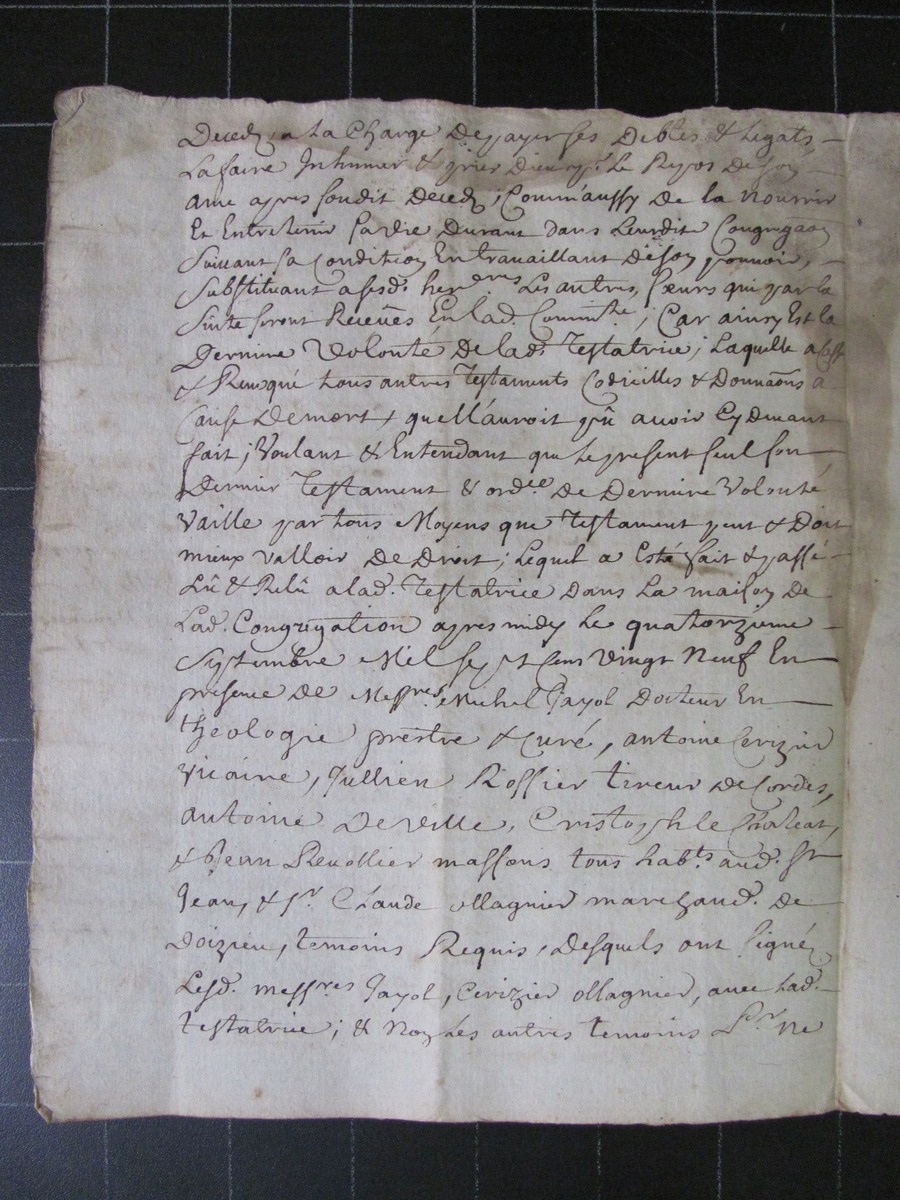 Deced, a La Charge De payer ses Debtes & Legats –
La faire Inhumer & prier Dieu p.r Le Repos De son
ame apres sondit Deced, Comm'aussy De la nourrir
Et Entretenir sa vie Durant dans Leurdite Congregaon
Suivant sa Condition En travaillant De son pouvoir, –
Substituant asesd. her.eres Les autres, sœurs qui par la
Suite seront Receües En lad. Commte. ; Car ainsy Est la
Derniere Volonté De lad. Testatrice ; Laquelle a Cassé
& Revoqué tous autres Testaments Codicilles & Donnaons a
Cause De mort, quell'auroit pû avoir Cy Devant
fait ; Voulant & Entendant que Le present seul son
Dernier Testament & ord.ce De Derniere Volonté
Vaille par tous Moyens que Testament peut & Doit
mieux Valloir De Droit ; Lequel a Esté fait & passé –
Lû & Relû alad. Testatrice Dans La maison De
Lad. Congregation apres midy Le quatorzieme –
Septembre Mil sept cens vingt neuf En
presence De Messres Michel Jayol Docteur En
theologie prestre & curé, antoine Cerizier
Vicaire, Jullien Rossier tireur De Cordes,
antoine Deville, Cristophle
& Jean Revollier massons tous habts aud. St
Jean, & sr. Claude Ollagnier marchand. De
Doizieu, temoins Requis, Desquels ont signéz
Lesd. messres Jayol, Cerizier Ollagnier, avec Lad. –
testatrice ; & Non Les autres temoins Pr Ne